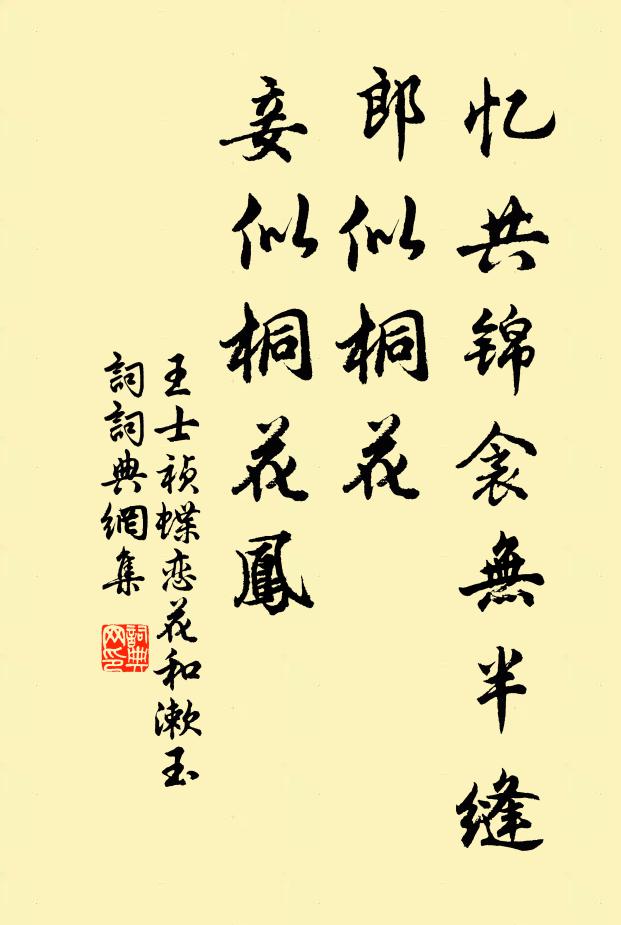 忆共锦衾無半缝
郎似桐花
妾似桐花鳳
王士祯蝶恋花和漱玉
詞詞典網集
詞典网印